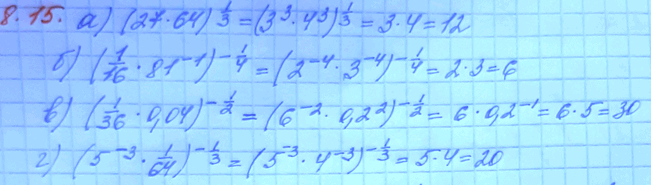 8.15. а) (27·64)^(1/3) = (3³·4³)^(1/3) = 3·4 = 12
б) (1/16 · 81⁻¹)^(-1/4) = (2⁻⁴·3⁻⁴)^(-1/4) = 2·3 = 6
в) (1/36 · 0,04)^(-1/2) = (6⁻²·0,2²)^(-1/2) = 6·0,2⁻¹ = 6·5 = 30
г) (5⁻³ · 1/64)^(-1/3) = (5⁻³·4⁻³)^(-1/3) = 5·4 = 20